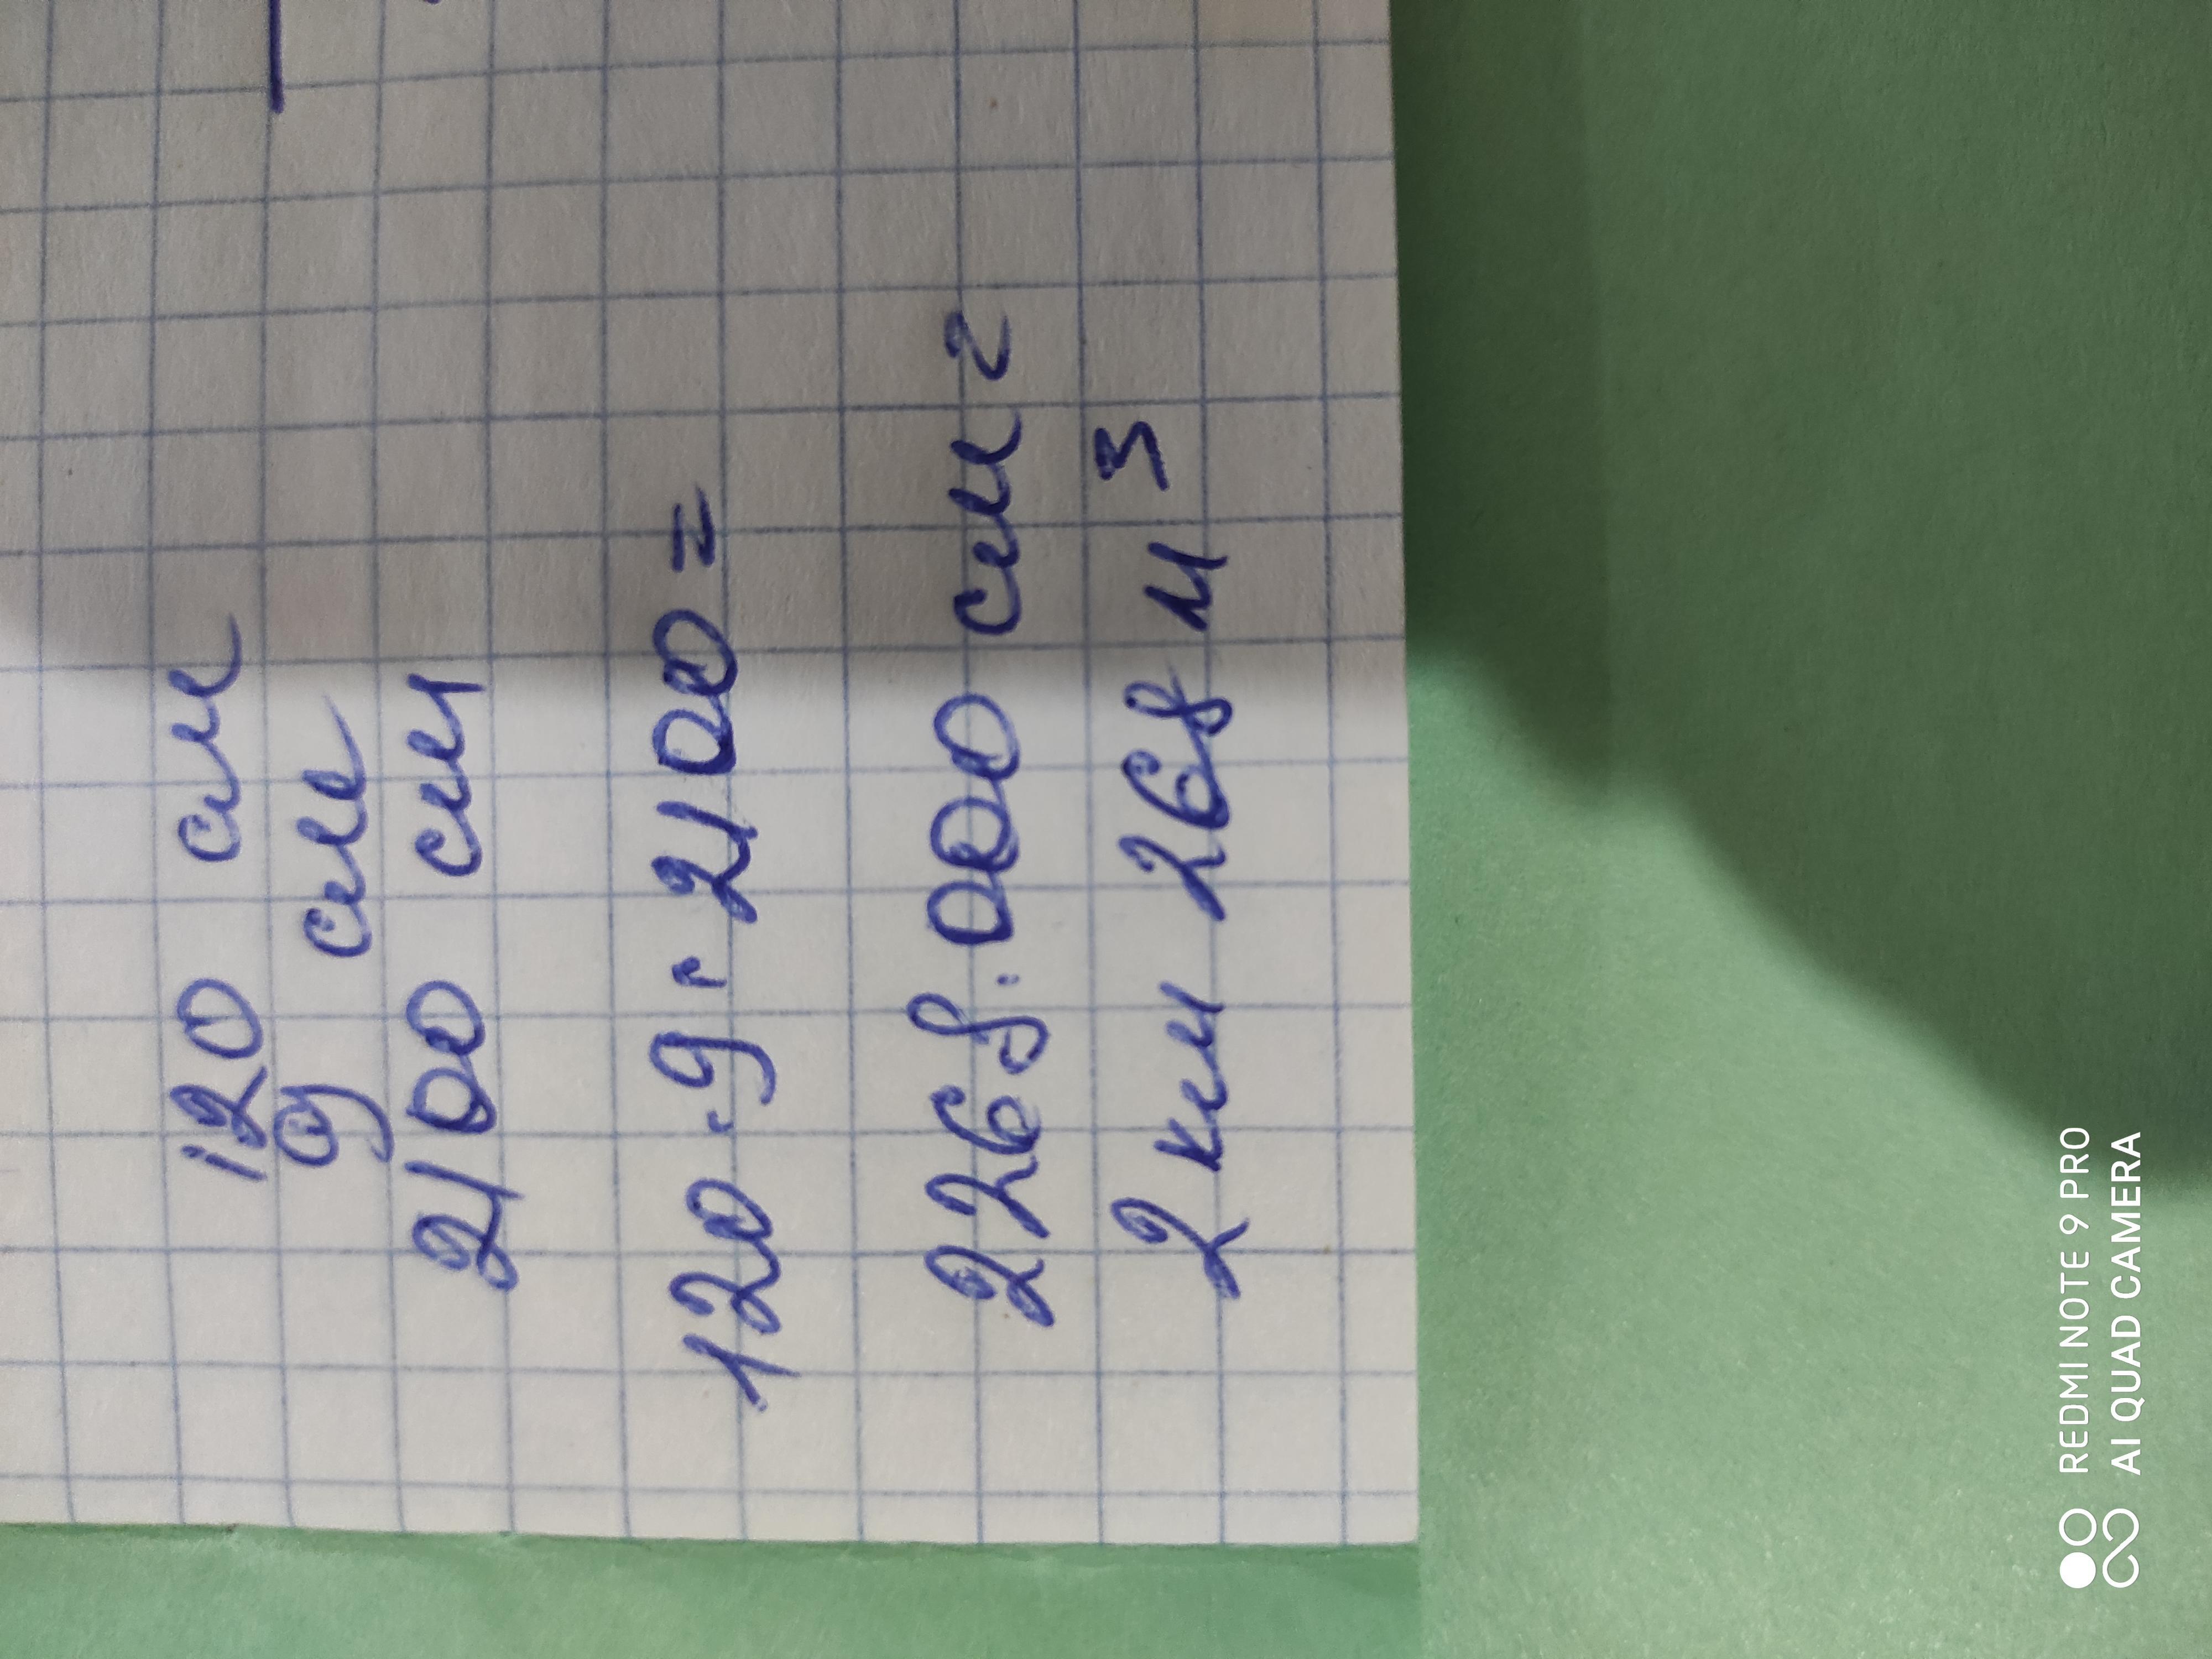 120 см
9 см
2100 см
120.9.2100=
2268.000 см2
2 км 268 м3
REDMI NOTE 9 PRO
AI QUAD CAMERA